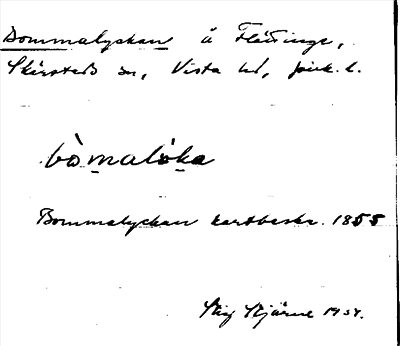 Bommalyckan å Flättinge,
Skärstads sn, Vista hd, Jönk. l.
bòmalỳka
Bommalyckan kartbeskr. 1855
Stig Stjärne 1934.